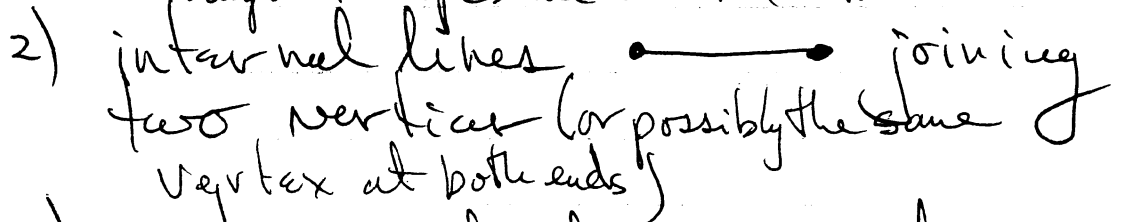 2) internal lines joining
two vertices (or possibly the same
vertex at both ends)